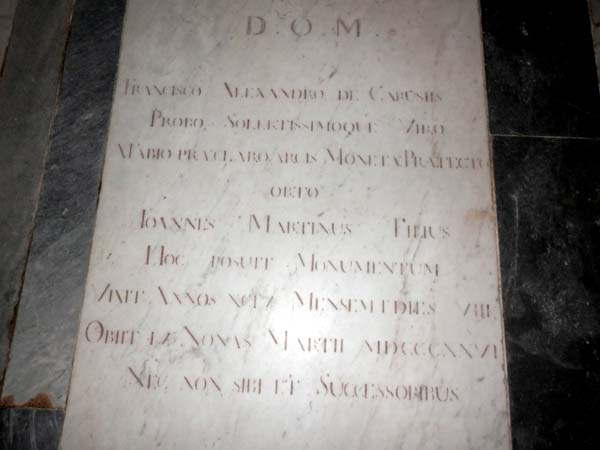 D.O.M.
FRANCISCO ALEXANDRO DE CARUSIIS
PROBO SOLERTISSIMOQUE VIRO
FABIO PRÆCLARO ARCIS MONETÆ PRÆFECTO
ORTO
IOANNES MARTINUS FILIUS
HOC POSUIT MONUMENTUM
VIXIT ANNOS MENSEM ET DIES VIII
OBIIT NONAS MARTII
NEC NON SIBI ET SUCCESSORIBUS